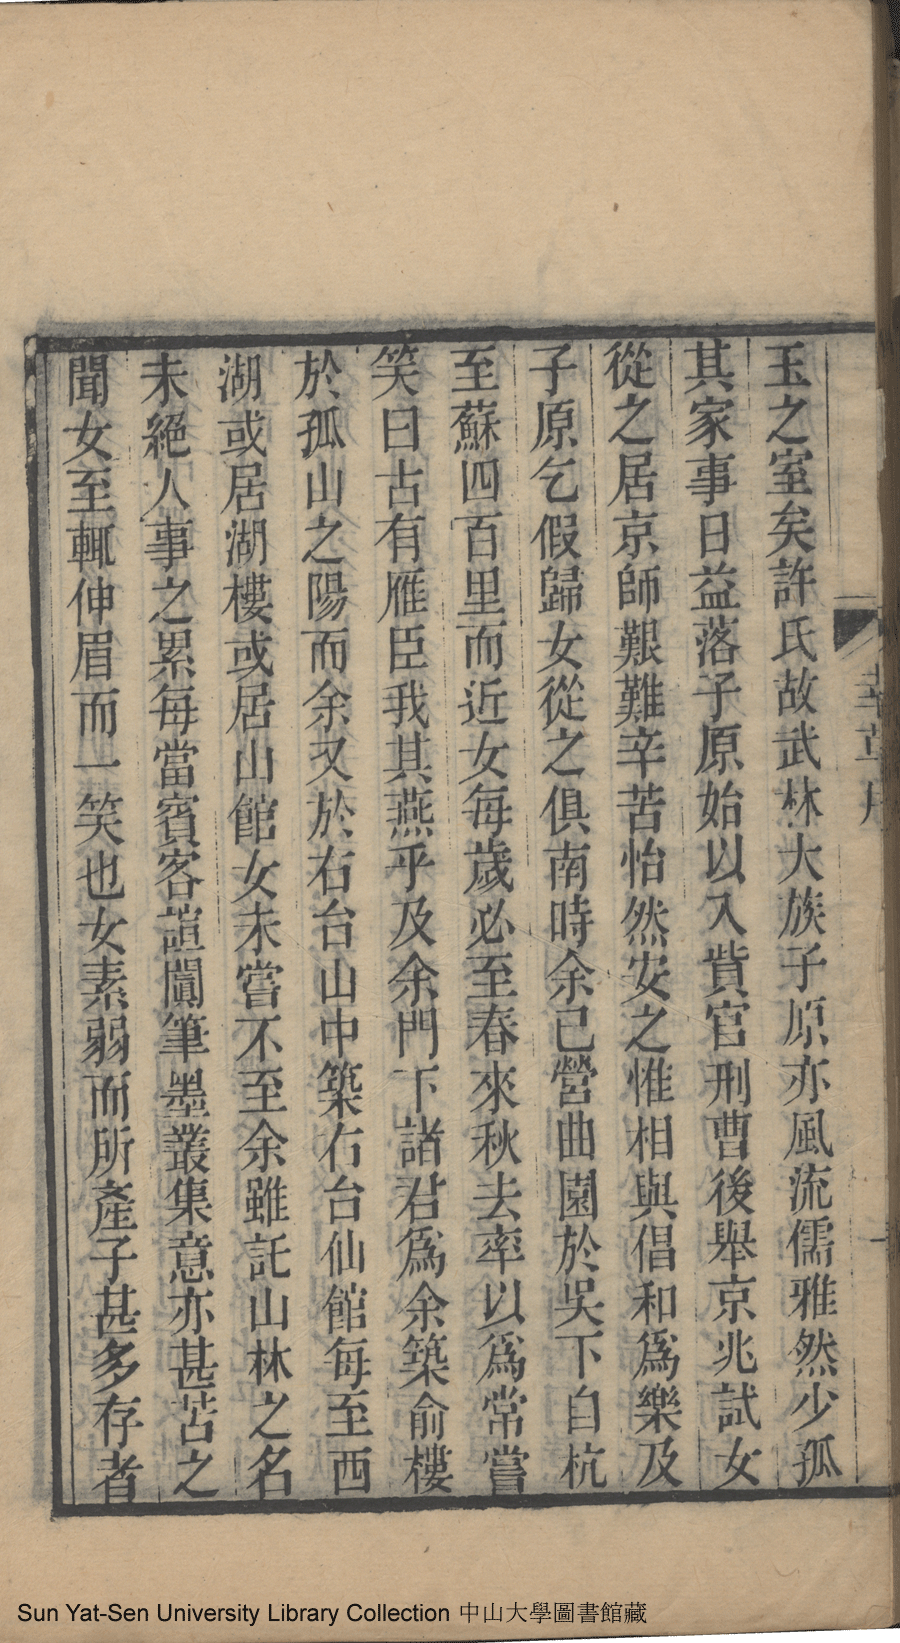 玉之室矣許氏故武林大族子原亦風流儒雅然少孤
其家事日益落子原始以入貲官刑曹後舉京兆試女
從之居京師艱難辛苦怡然安之惟相與倡和爲樂及
子原乞假歸女從之俱南時余已營曲園於吳下自杭
至蘇四百里而近女每歲必至春來秋去率以爲常嘗
笑曰古有雁臣我其燕乎及余門下諸君爲余築俞樓
於孤山之陽而余又於右台山中築右台仙館每至西
湖或居湖樓或居山館女未嘗不至余雖託山林之名
未絕人事之累每當賓客諠闐筆墨叢集意亦甚苦之
聞女至輒伸眉而一笑也女素弱而所產子甚多存者
Sun Yat-Sen University Library Collection 中山大學圖書館藏